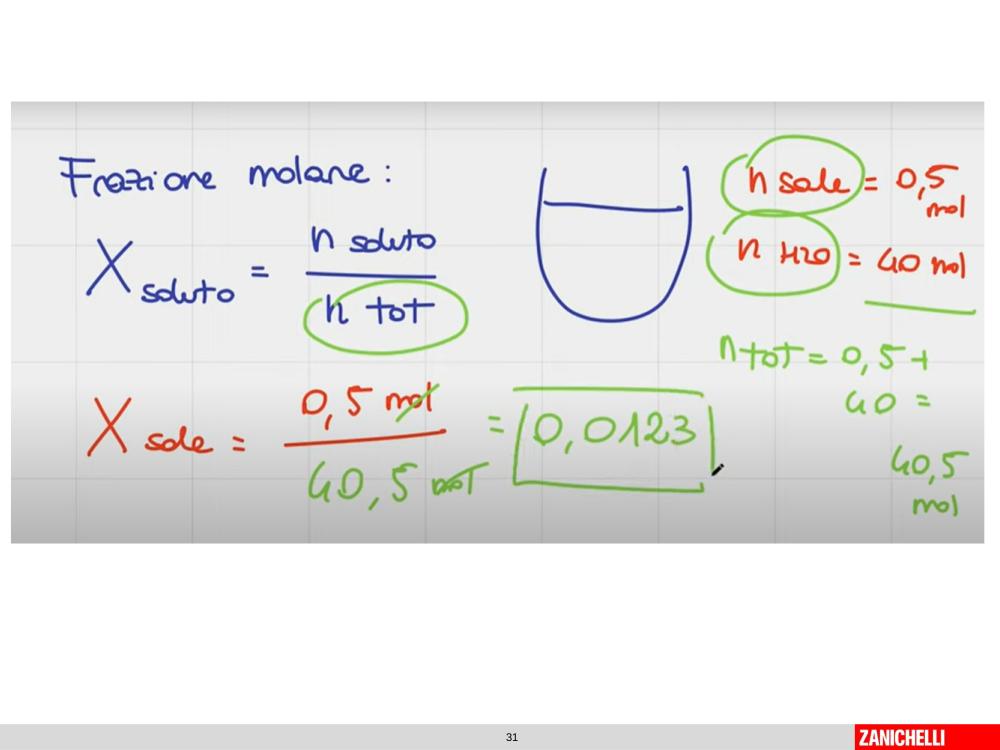 Frazione molare :
X soluto = n soluto / n tot
n sale = 0,5 mol
n H2O = 40 mol
n tot = 0,5 +
40 =
40,5
mol
X sale = 0,5 mol / 40,5 mol = 0,0123
31
ZANICHELLI